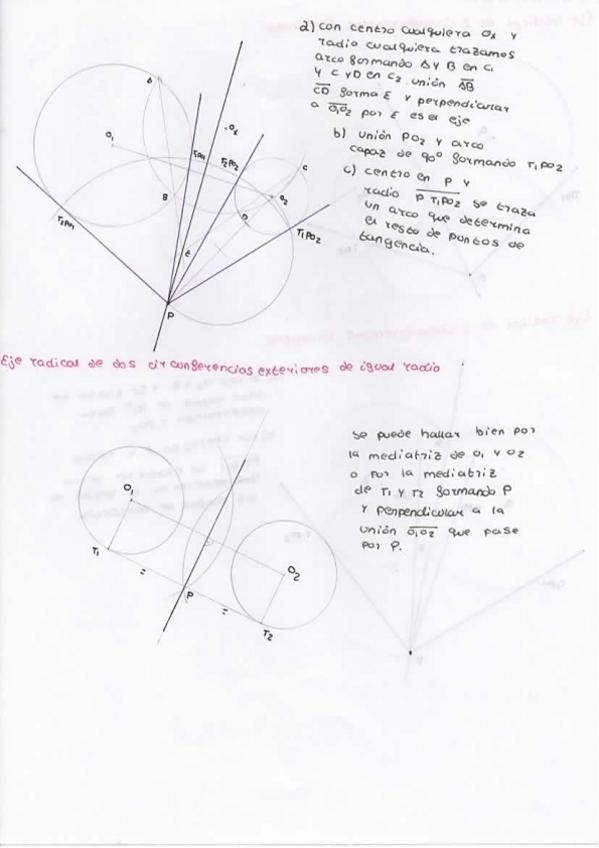 a) con centro cualquiera Ox y
radio cualquiera trazamos
arco formando A y B en C1
y C y D en C2. unión AB
CD forma E y perpendicular
a O1O2 por E es el eje
b) unión PO2 y arco
capaz de 90° formando T1PO2
c) centro en P y
radio P T1PO2 se traza
un arco que determina
el resto de puntos de
tangencia.
A
O1
Ox
T2PO2
C
B
O2
D
T1PO2
E
P
Eje radical de dos circunferencias exteriores de igual radio
se puede hallar bien por
la mediatriz de O1 y O2
o por la mediatriz
de T1 y T2 formando P
y perpendicular a la
unión O1O2 que pase
por P.
O1
T1
=
P
O2
=
T2